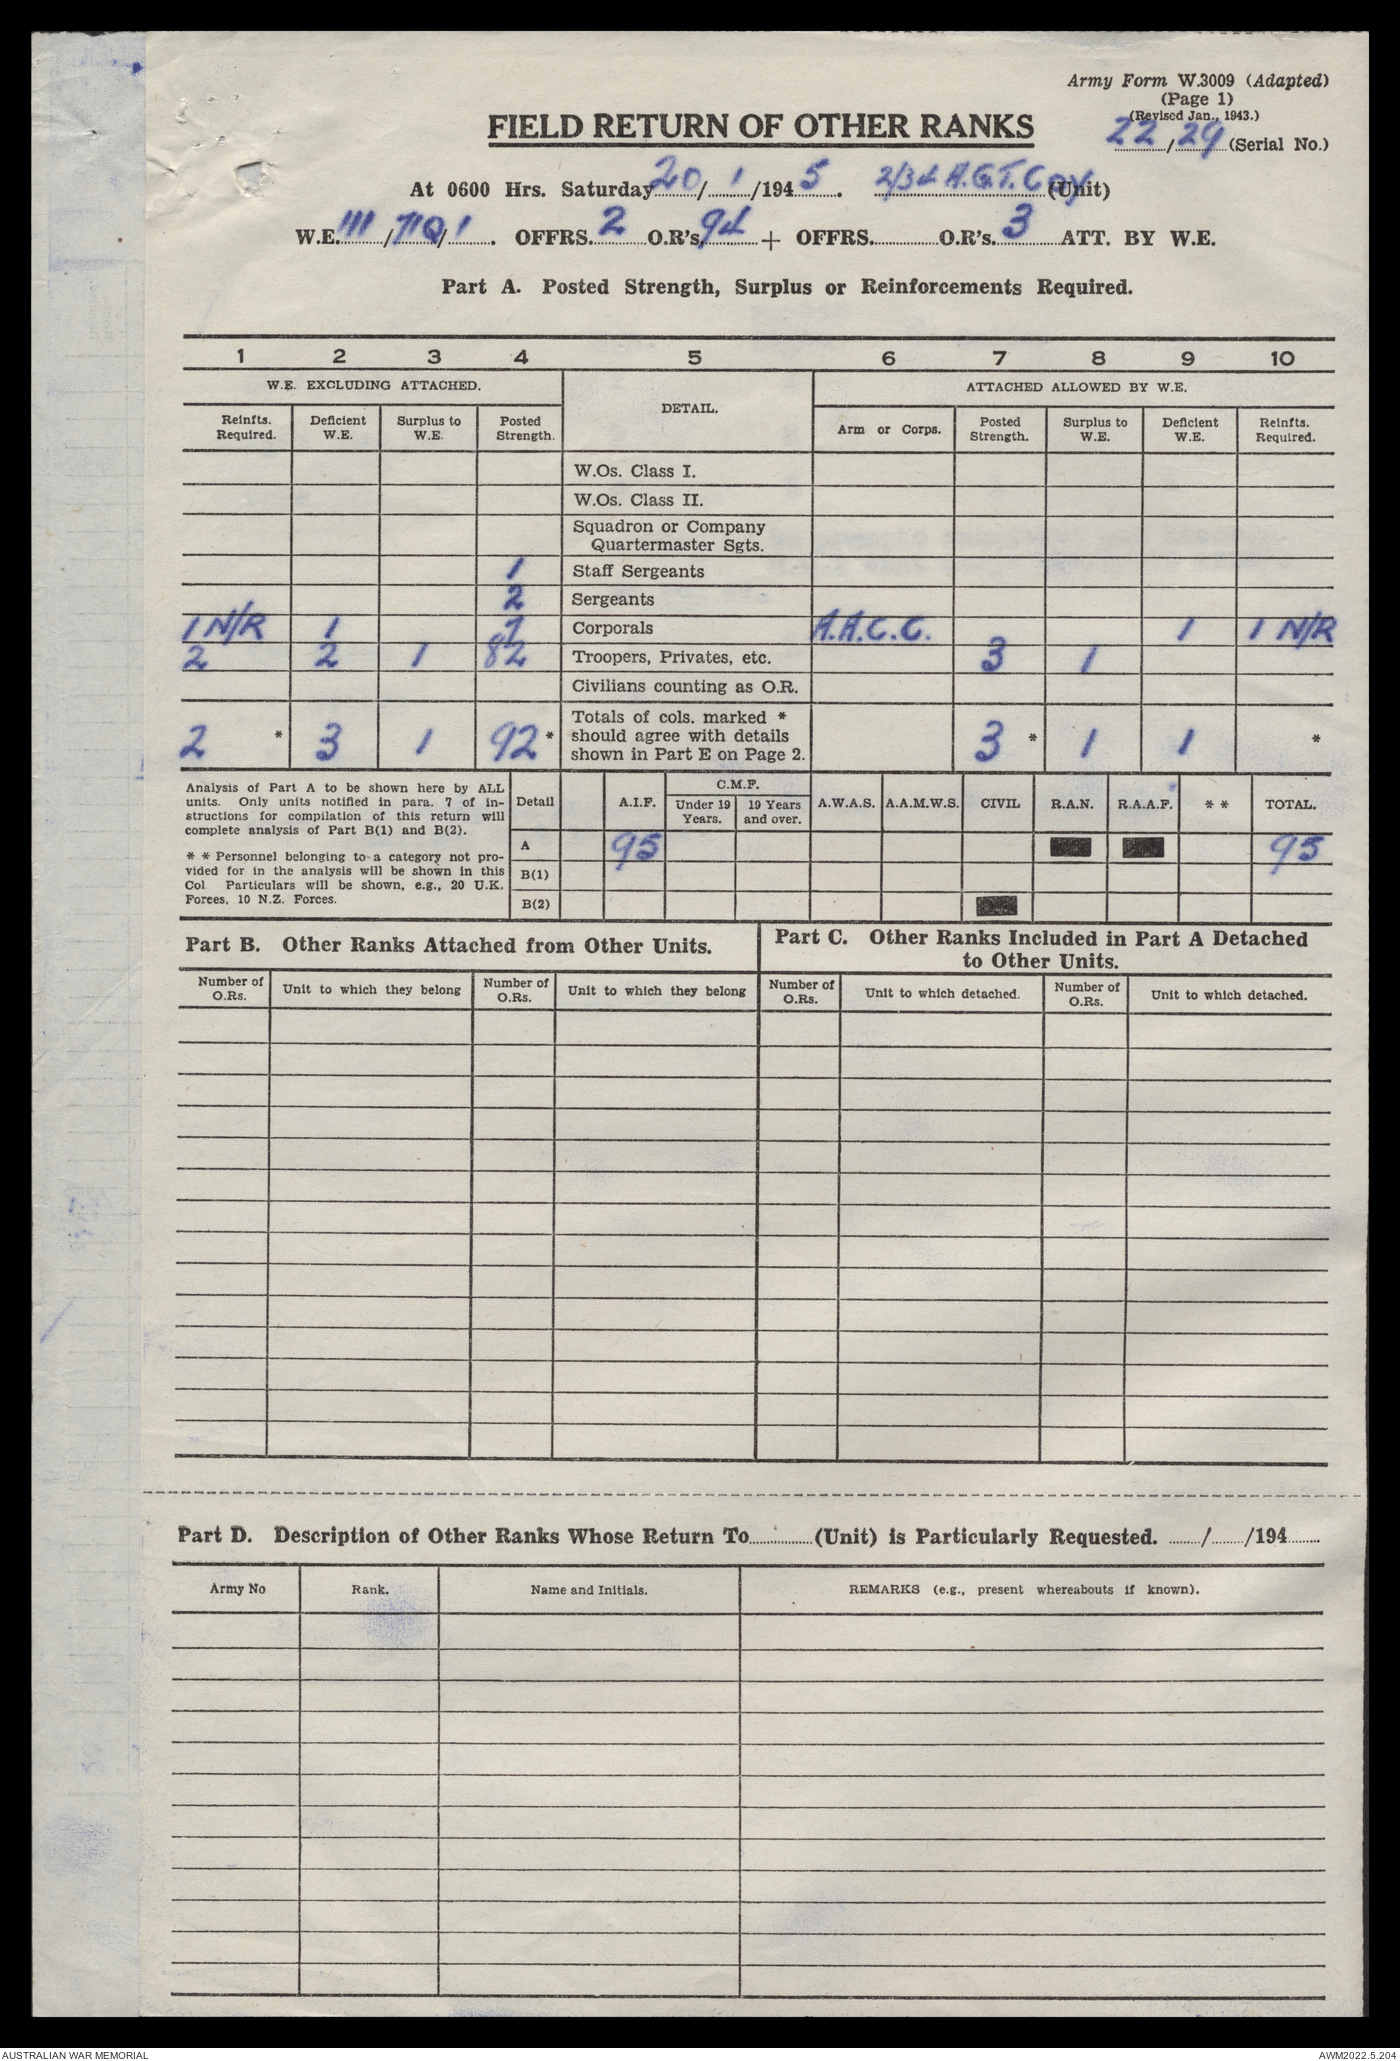 Army Form W.3009 (Adapted)
(Page 1)
(Revised Jan., 1943.)
FIELD RETURN OF OTHER RANKS
22/29 (Serial No.)
At 0600 Hrs. Saturday 20/1/1945. 2/34 A.G.T. Coy (Unit)
W.E. 111/71Q/1. OFFRS. 2 O.R's. 94 + OFFRS. O.R's. 3 ATT. BY W.E.
Part A. Posted Strength, Surplus or Reinforcements Required.
1 2 3 4 5 6 7 8 9 10
W.E. EXCLUDING ATTACHED. DETAIL. ATTACHED ALLOWED BY W.E.
Reinfts. Required. Deficient W.E. Surplus to W.E. Posted Strength. Arm or Corps. Posted Strength. Surplus to W.E. Deficient W.E. Reinfts. Required.
W.Os. Class I.
W.Os. Class II.
Squadron or Company
Quartermaster Sgts.
1 Staff Sergeants
2 Sergeants
1 N/R 1 7 Corporals A.A.C.C. 1 1 N/R
2 2 1 82 Troopers, Privates, etc. 3 1
Civilians counting as O.R.
Totals of cols. marked *
2 * 3 1 92 * should agree with details 3 * 1 1 *
shown in Part E on Page 2.
Analysis of Part A to be shown here by ALL
units. Only units notified in para. 7 of in-
structions for compilation of this return will
complete analysis of Part B(1) and B(2).
* * Personnel belonging to a category not pro-
vided for in the analysis will be shown in this
Col Particulars will be shown, e.g., 20 U.K.
Forces, 10 N.Z. Forces.
Detail A.I.F. C.M.F. Under 19 Years. 19 Years and over. A.W.A.S. A.A.M.W.S. CIVIL R.A.N. R.A.A.F. * * TOTAL.
A 95 95
B(1)
B(2)
Part B. Other Ranks Attached from Other Units.
Part C. Other Ranks Included in Part A Detached
to Other Units.
Number of O.Rs. Unit to which they belong Number of O.Rs. Unit to which they belong Number of O.Rs. Unit to which detached. Number of O.Rs. Unit to which detached.
Part D. Description of Other Ranks Whose Return To (Unit) is Particularly Requested. / /194
Army No Rank. Name and Initials. REMARKS (e.g., present whereabouts if known).
AUSTRALIAN WAR MEMORIAL AWM2022.5.204